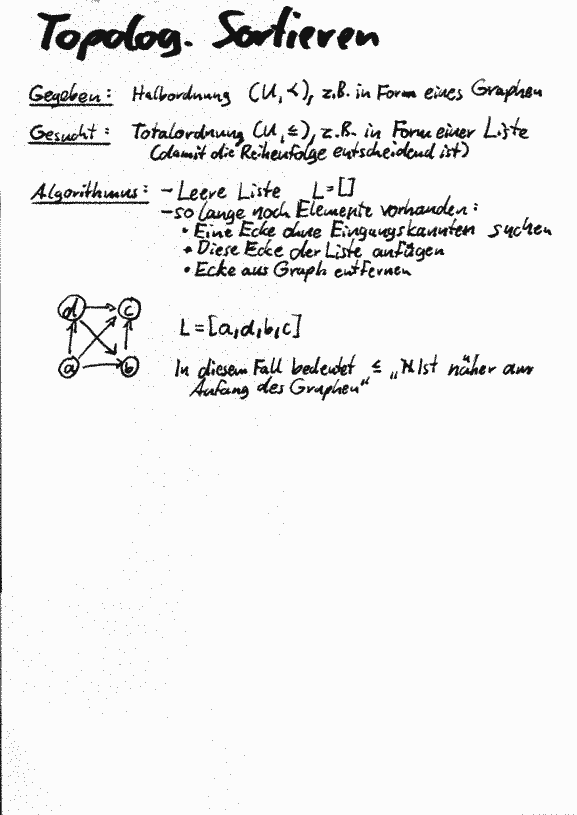 Topolog. Sortieren
Gegeben: Halbordnung (U, ≺), z.B. in Form eines Graphen
Gesucht: Totalordnung (U, ≤), z.B. in Form einer Liste
(damit die Reihenfolge entscheidend ist)
Algorithmus: - Leere Liste L=[]
- so lange noch Elemente vorhanden:
• Eine Ecke ohne Eingungskannten suchen
• Diese Ecke der Liste anfügen
• Ecke aus Graph entfernen
d c
L=[a,d,b,c]
a b
In diesem Fall bedeutet ≤ „ist näher am
Anfang des Graphen"